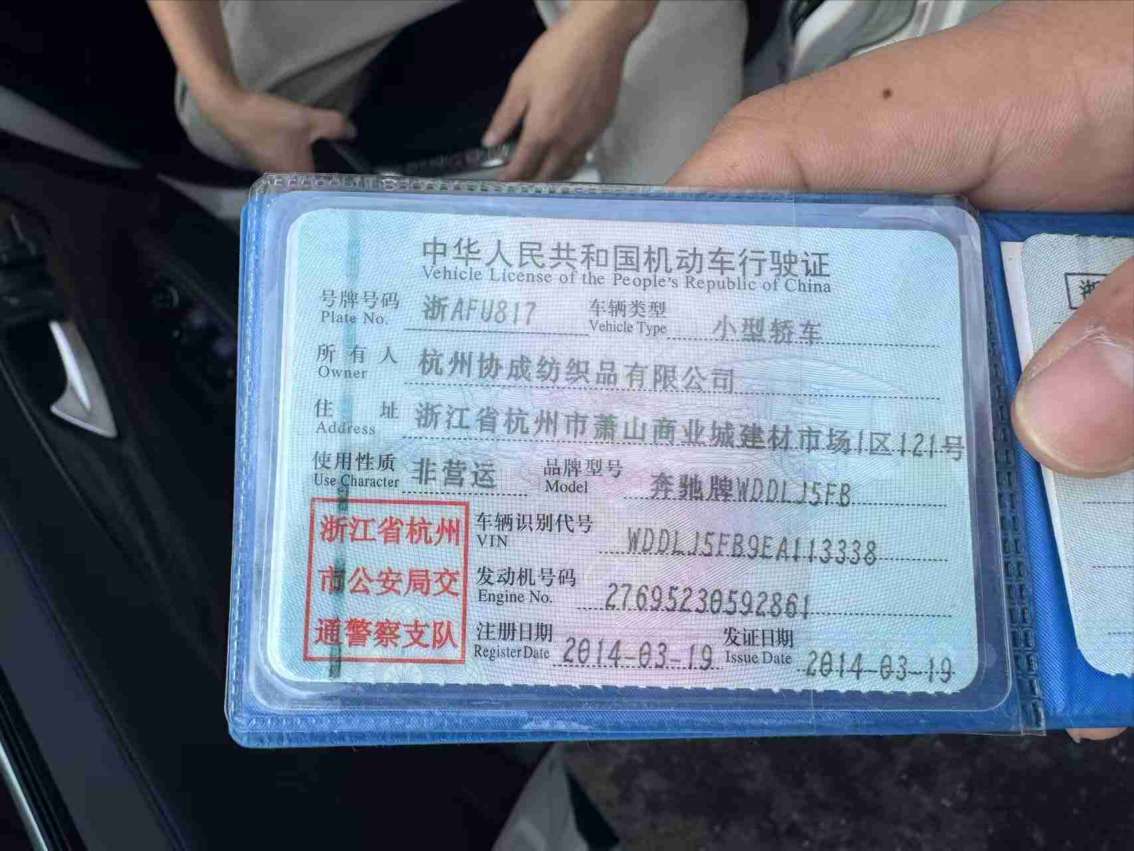 中华人民共和国机动车行驶证
Vehicle License of the People's Republic of China
号牌号码 浙AFU817 车辆类型 小型轿车
Plate No. Vehicle Type
所有人 杭州协成纺织品有限公司
Owner
住址 浙江省杭州市萧山商业城建材市场1区121号
Address
使用性质 非营运 品牌型号 奔驰牌WDDLJ5FB
Use Character Model
浙江省杭州
市公安局交
通警察支队
车辆识别代号 WDDLJ5FB9EA113338
VIN
发动机号码 27695230592861
Engine No.
注册日期 2014-03-19 发证日期 2014-03-19
Register Date Issue Date
浙